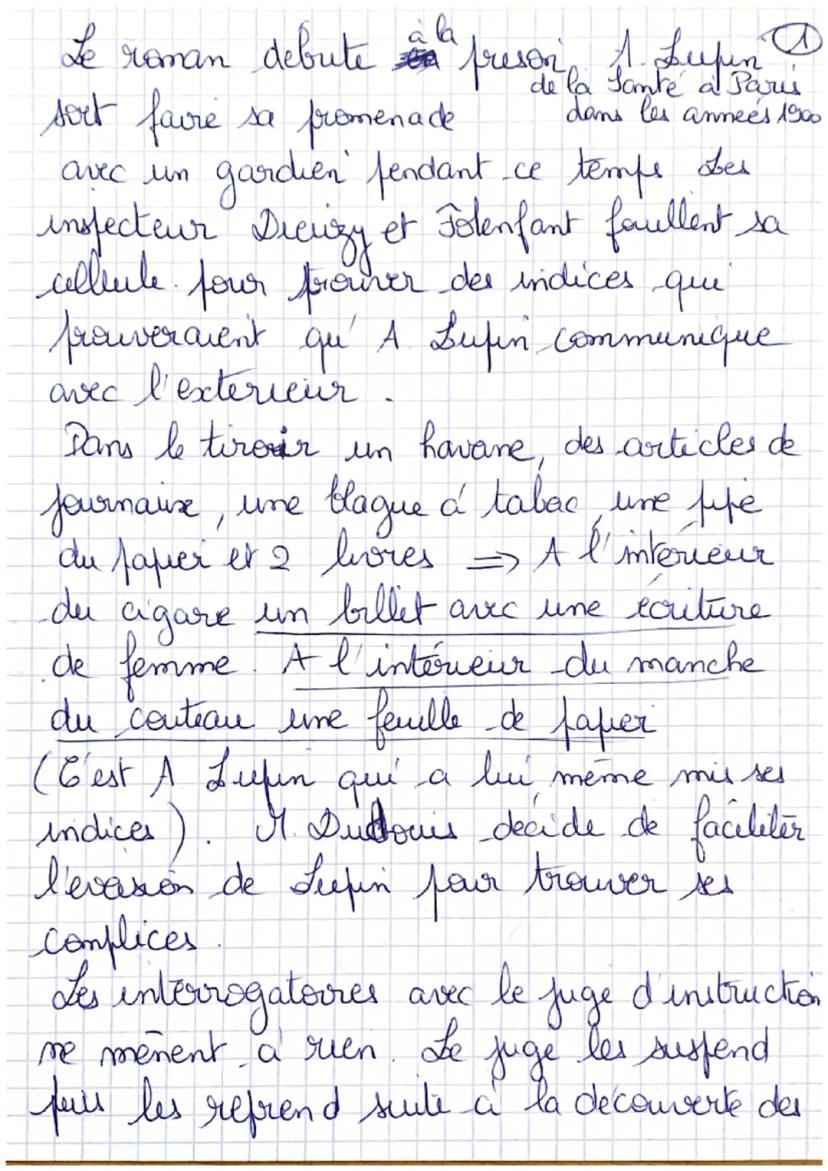 Le roman debute à la preson, A. Lupin ①
de la Santé à Paris
sort faire sa promenade dans les années 1900
avec un gardien pendant ce temps Les
inspecteur Dieuzy et Folenfant fouillent sa
cellule pour trouver des indices qui
prouveraient qu'A Lupin communique
avec l'exterieur.
Dans le tiroir un havane, des articles de
journaux, une blague à tabac, une pipe
du papier et 2 livres => A l'intérieur
du cigare un billet avec une écriture
de femme. A l'intérieur du manche
du couteau une feuille de papier
(C'est A Lupin qui a lui même mis ses
indices). M. Dudouis decide de faciliter
l'evasion de Lupin pour trouver ses
complices.
Les interrogatoires avec le juge d'instruction
ne mènent à rien. Le juge les suspend
puis les reprend suite à la découverte des